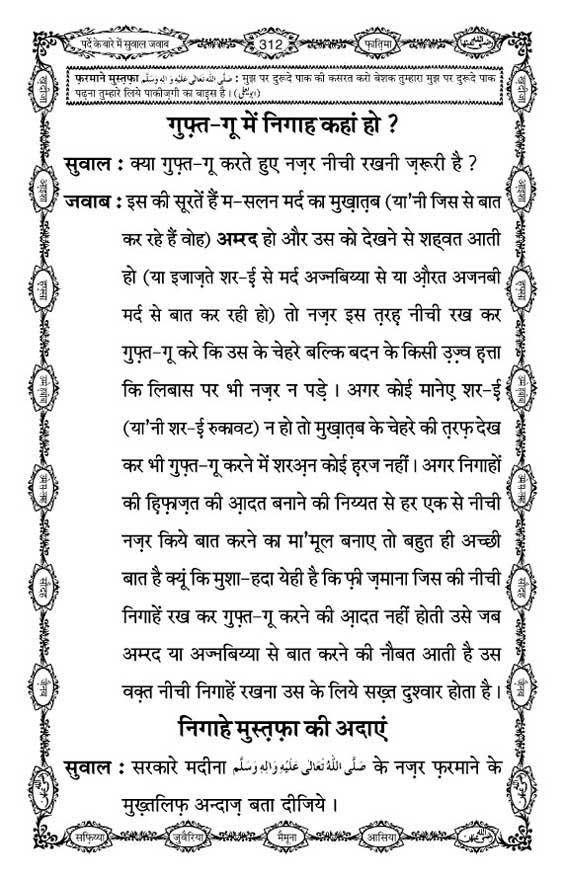 पर्दे के बारे में सुवाल जवाब
312
फ़ातिमा
फ़रमाने मुस्तफ़ा صَلَّى اللهُ تَعَالٰى عَلَيْهِ وَاٰلِهٖ وَسَلَّم : मुझ पर दुरूदे पाक की कसरत करो बेशक तुम्हारा मुझ पर दुरूदे पाक
पढ़ना तुम्हारे लिये पाकीज़गी का बाइस है । (ابویعلٰی)
गुफ़्त-गू में निगाह कहां हो ?
सुवाल : क्या गुफ़्त-गू करते हुए नज़र नीची रखनी ज़रूरी है ?
जवाब : इस की सूरतें हैं म-सलन मर्द का मुख़ात़ब (या'नी जिस से बात
कर रहे हैं वोह) अम्रद हो और उस को देखने से शह्वत आती
हो (या इजाज़ते शर-ई से मर्द अज्नबिय्या से या औ़रत अजनबी
मर्द से बात कर रही हो) तो नज़र इस त़रह़ नीची रख कर
गुफ़्त-गू करे कि उस के चेहरे बल्कि बदन के किसी उ़ज़्व ह़त्ता
कि लिबास पर भी नज़र न पड़े । अगर कोई मानेए शर-ई
(या'नी शर-ई रुकावट) न हो तो मुख़ात़ब के चेहरे की त़रफ़ देख
कर भी गुफ़्त-गू करने में शरअ़न कोई ह़रज नहीं । अगर निगाहों
की ह़िफ़ाज़त की आ़दत बनाने की निय्यत से हर एक से नीची
नज़र किये बात करने का मा'मूल बनाए तो बहुत ही अच्छी
बात है क्यूं कि मुशा-हदा येही है कि फ़ी ज़माना जिस की नीची
निगाहें रख कर गुफ़्त-गू करने की आ़दत नहीं होती उसे जब
अम्रद या अज्नबिय्या से बात करने की नौबत आती है उस
वक़्त नीची निगाहें रखना उस के लिये सख़्त दुश्वार होता है ।
निगाहे मुस्त़फ़ा की अदाएं
सुवाल : सरकारे मदीना صَلَّى اللهُ تَعَالٰى عَلَيْهِ وَاٰلِهٖ وَسَلَّم के नज़र फ़रमाने के
मुख़्तलिफ़ अन्दाज़ बता दीजिये ।
सफ़िय्या
जुवैरिया
मैमूना
आसिया